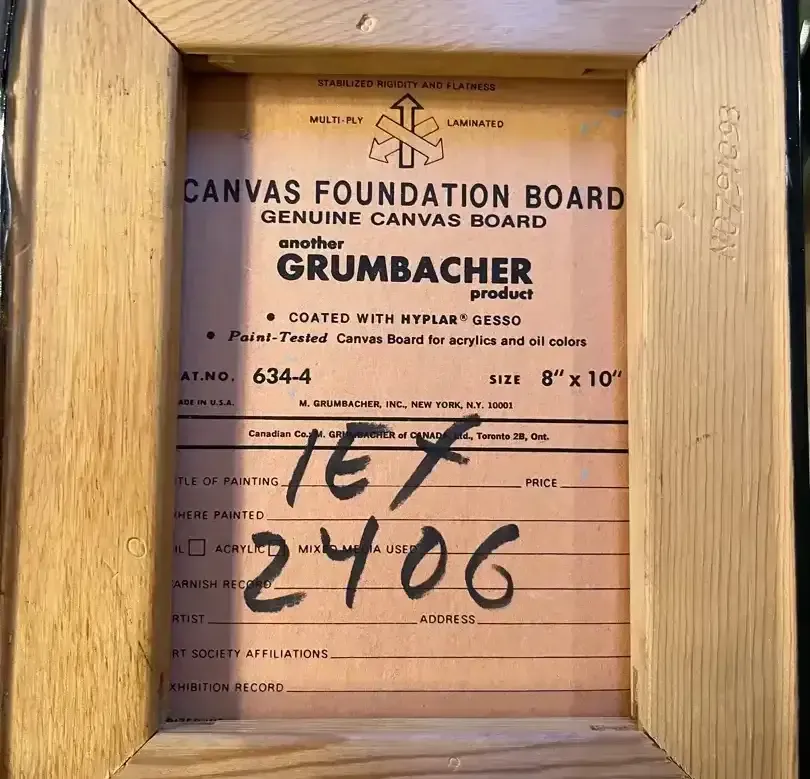 STABILIZED RIGIDITY AND FLATNESS
MULTI-PLY LAMINATED
CANVAS FOUNDATION BOARD
GENUINE CANVAS BOARD
another
GRUMBACHER
product
• COATED WITH HYPLAR® GESSO
• Paint-Tested Canvas Board for acrylics and oil colors
AT.NO. 634-4 SIZE 8" x 10"
ADE IN U.S.A. M. GRUMBACHER, INC., NEW YORK, N.Y. 10001
Canadian Co.: M. GRUMBACHER of CANADA Ltd., Toronto 2B, Ont.
ITLE OF PAINTING PRICE
HERE PAINTED
IL ACRYLIC MIXED MEDIA USED
ARNISH RECORD
RTIST ADDRESS
RT SOCIETY AFFILIATIONS
XHIBITION RECORD
2406